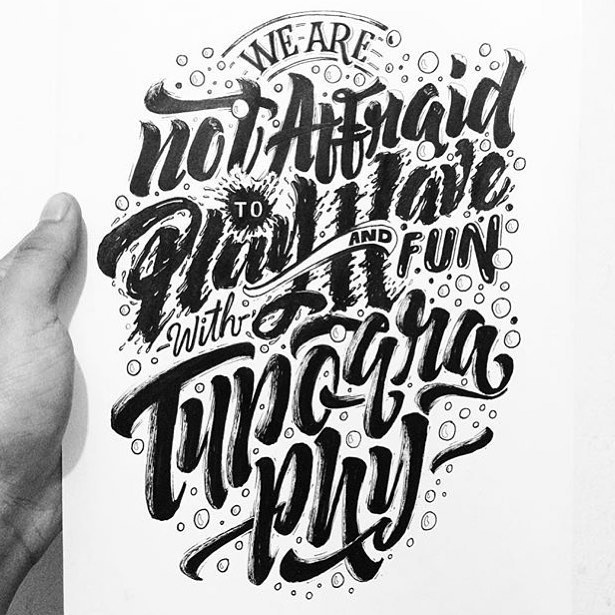 WE ARE
not Affraid
TO
Play AND Have
FUN
With
Typogra
phy